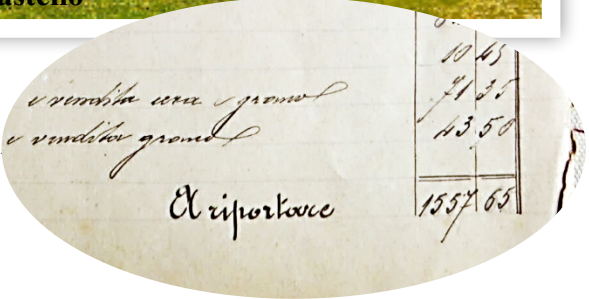 10 45
e vendita cera e grano 71 35
e vendita grano 43 50
A riportare 1557 65